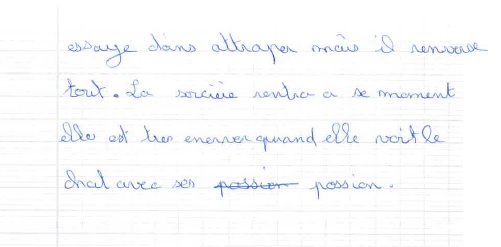 essaye dans attraper mais il renverse
tout. La sorcière rentra a se moment
elle est tres enerver quand elle voit le
chat avec ses possion possion.